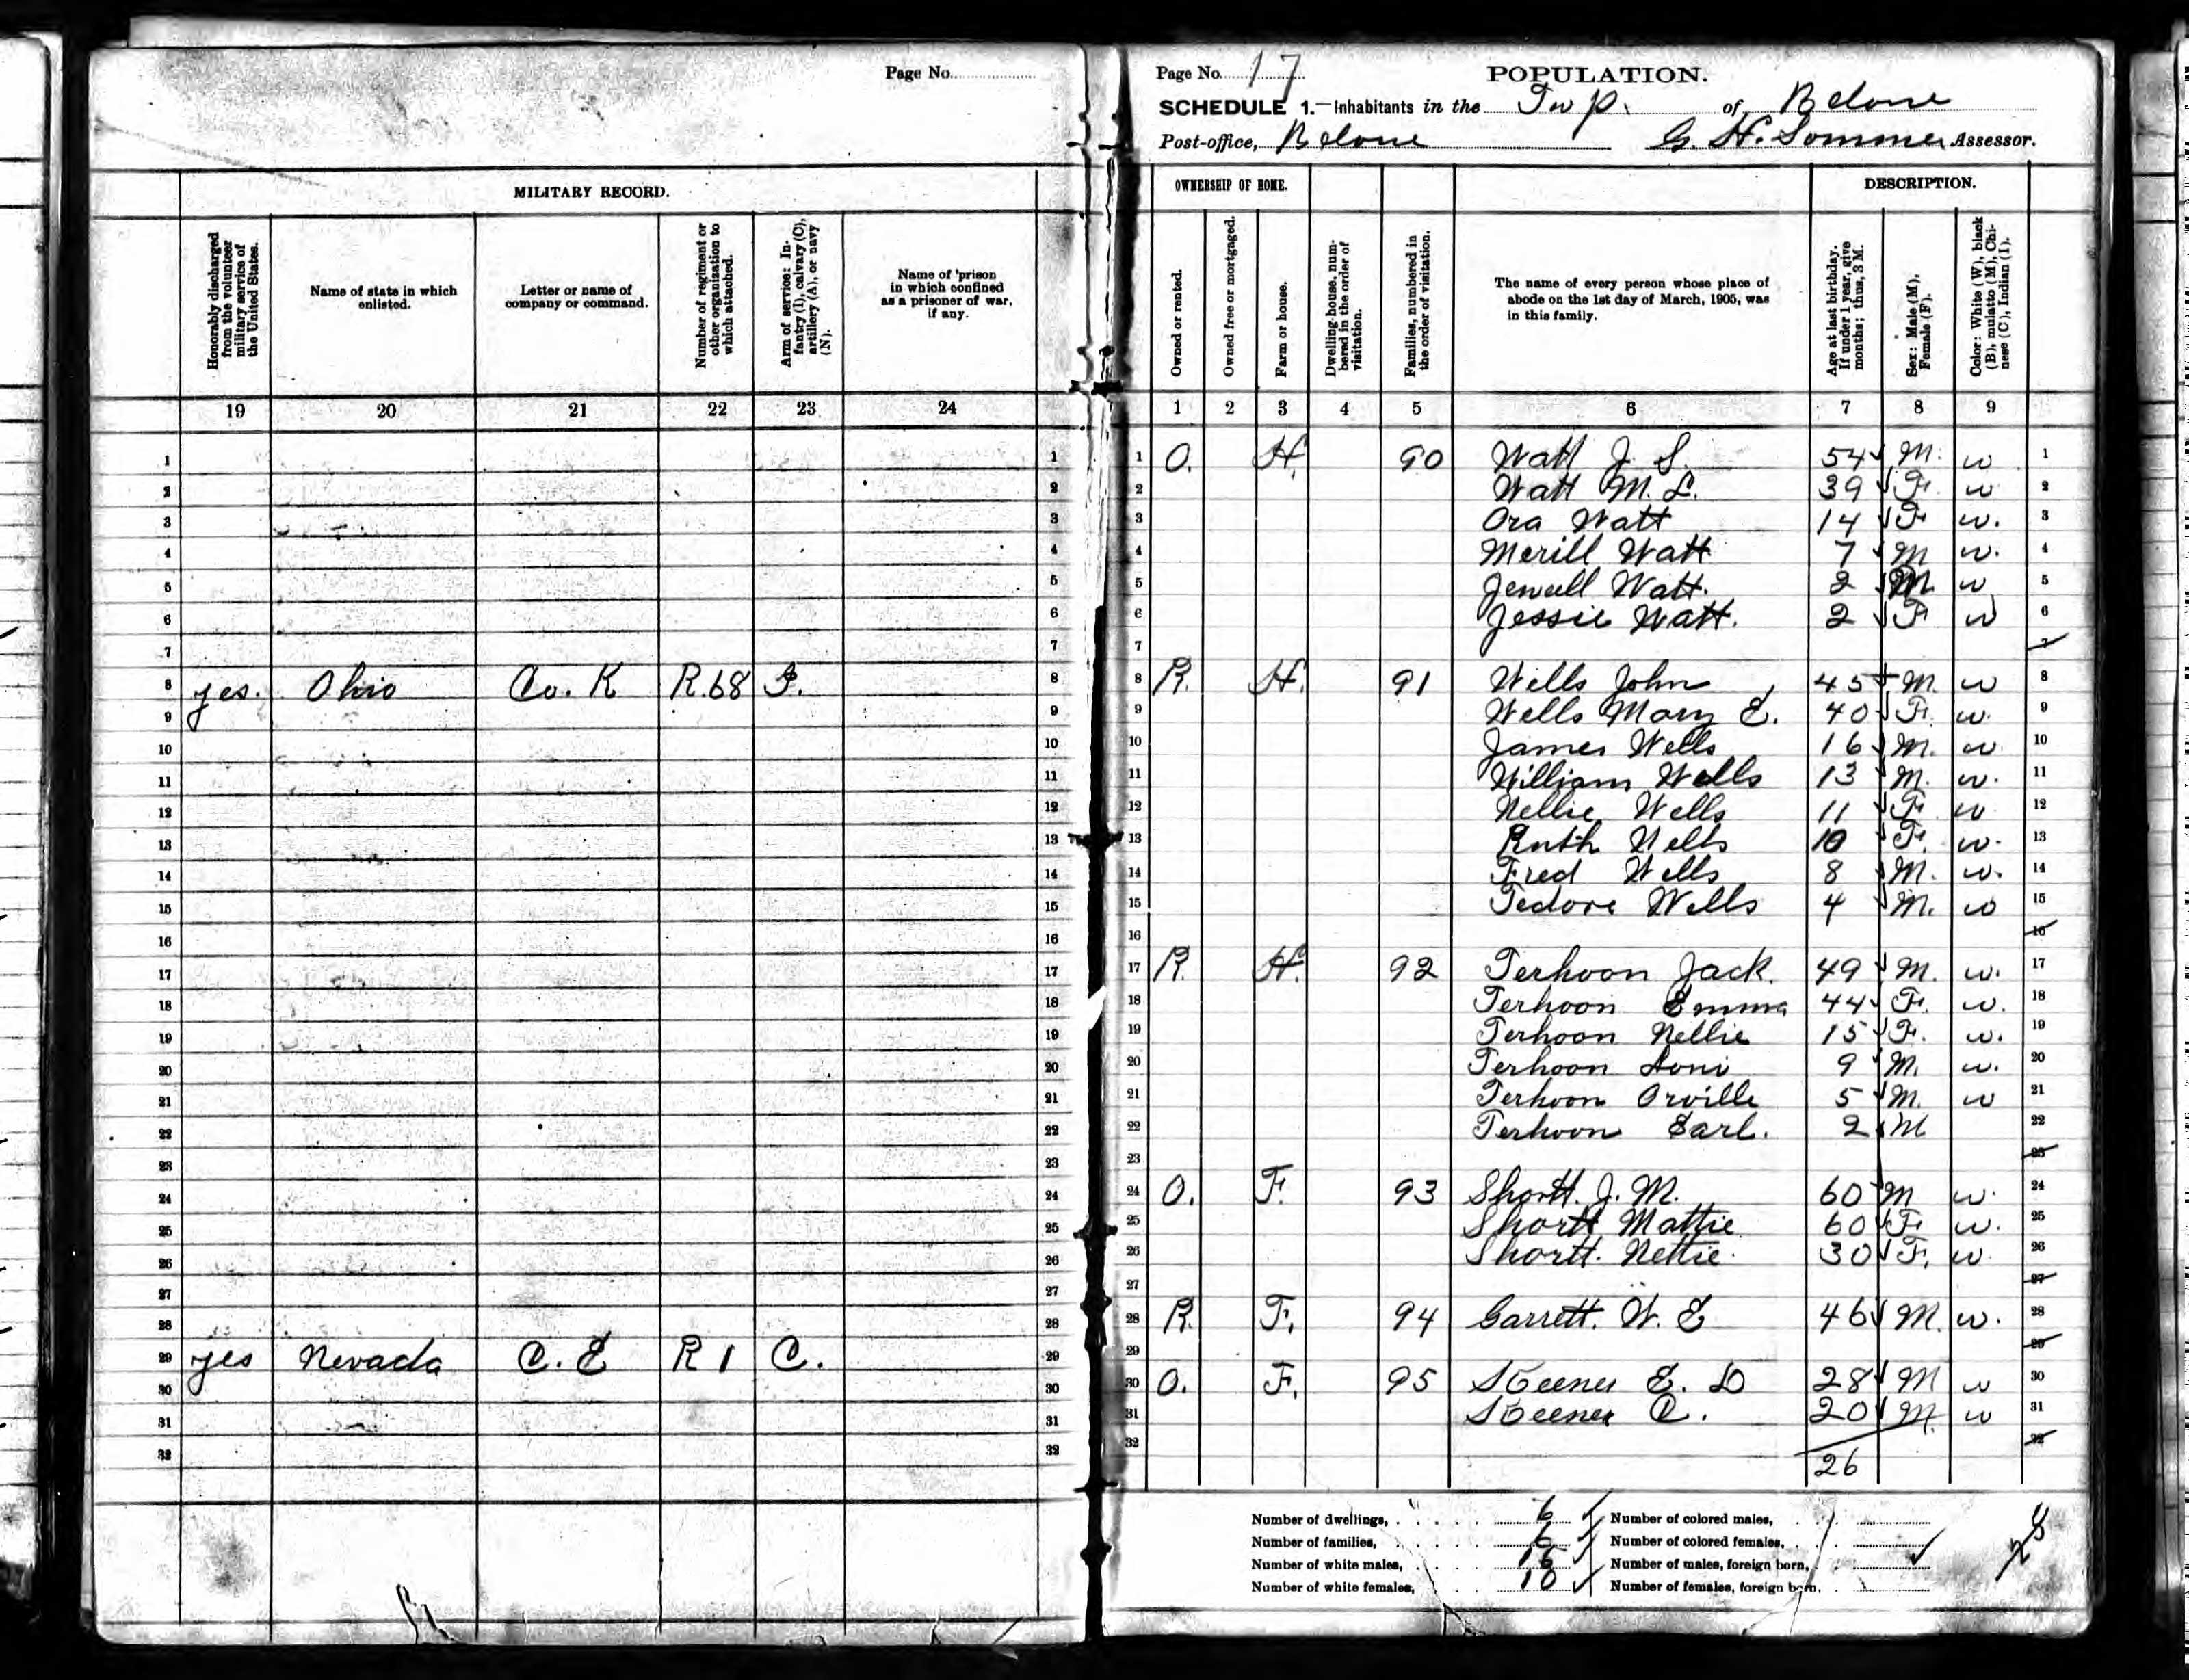 Page No.
MILITARY RECORD.
Honorably discharged from the volunteer military service of the United States.
Name of state in which enlisted.
Letter or name of company or command.
Number of regiment or other organization to which attached.
Arm of service: Infantry (I), calvary (C), artillery (A), or navy (N).
Name of prison in which confined as a prisoner of war, if any.
19 20 21 22 23 24
1 1
2 2
3 3
4 4
5 5
6 6
7 7
8 yes. Ohio Co. K R. 68 I. 8
9 9
10 10
11 11
12 12
13 13
14 14
15 15
16 16
17 17
18 18
19 19
20 20
21 21
22 22
23 23
24 24
25 25
26 26
27 27
28 28
29 yes Nevada C. E R 1 C. 29
30 30
31 31
32 32
Page No. 17
POPULATION.
SCHEDULE 1.—Inhabitants in the Twp. of Belone
Post-office, Belone G. H. Sommer Assessor.
OWNERSHIP OF HOME. DESCRIPTION.
Owned or rented.
Owned free or mortgaged.
Farm or house.
Dwelling-house, numbered in the order of visitation.
Families, numbered in the order of visitation.
The name of every person whose place of abode on the 1st day of March, 1905, was in this family.
Age at last birthday. If under 1 year, give months; thus, 3 M.
Sex: Male (M), Female (F).
Color: White (W), black (B), mulatto (M), Chinese (C), Indian (I).
1 2 3 4 5 6 7 8 9
1 O. H. 90 Watt J. S. 54 M. w 1
2 Watt M. L. 39 F. w 2
3 Ora Watt 14 F w. 3
4 Merill Watt 7 M w. 4
5 Jewell Watt. 2 M. w 5
6 Jessie Watt. 2 F w 6
7 7
8 R. H. 91 Wells John 45 M. w 8
9 Wells Mary E. 40 F. w. 9
10 James Wells 16 M. w 10
11 William Wells 13 M. w. 11
12 Nellie Wells 11 F. w 12
13 Ruth Wells 10 F. w. 13
14 Fred Wells 8 M. w. 14
15 Tedore Wells 4 M. w 15
16 16
17 R. H. 92 Terhoon Jack. 49 M. w. 17
18 Terhoon Emma 44 F. w. 18
19 Terhoon Nellie 15 F. w. 19
20 Terhoon Loni 9 M. w. 20
21 Terhoon Orville 5 M. w 21
22 Terhoon Earl. 2 M 22
23 23
24 O. F. 93 Shortt. J. M. 60 M w. 24
25 Shortt Mattie 60 F w. 25
26 Shortt. Nettie. 30 F. w 26
27 27
28 R. F. 94 Garrett. W. E 46 M. w. 28
29 29
30 O. F. 95 Skeener E. D 28 M w 30
31 Skeener C. 20 M. w 31
32 32
26
Number of dwellings, 6 Number of colored males,
Number of families, 6 Number of colored females,
Number of white males, 16 Number of males, foreign born,
Number of white females, 10 Number of females, foreign born,